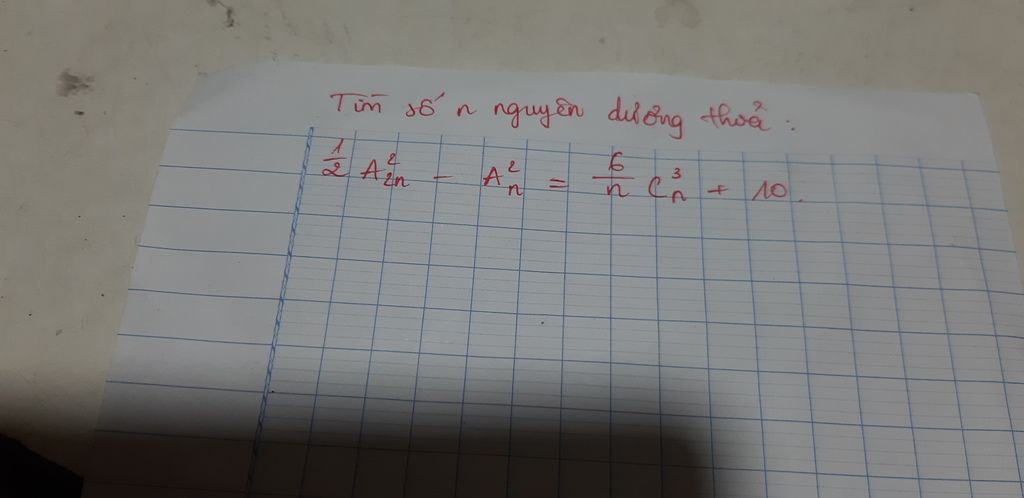 Tìm số n nguyên dương thoả :
$\frac{1}{2} A_{2n}^{2} - A_{n}^{2} = \frac{6}{n} C_{n}^{3} + 10.$